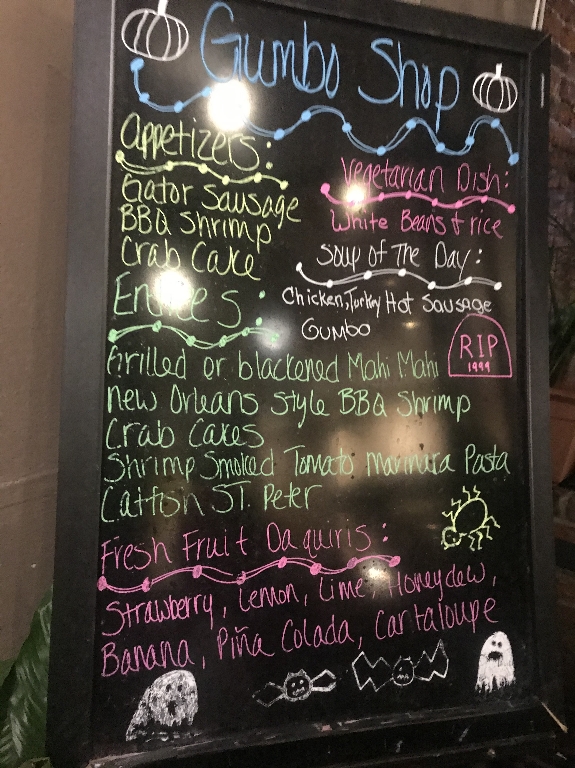 Gumbo Shop
Appetizers:
Gator Sausage
BBQ Shrimp
Crab Cake
Vegetarian Dish:
White Beans & rice
Soup of The Day:
Chicken, Turkey Hot Sausage
Gumbo
Entrees:
Grilled or blackened Mahi Mahi
New Orleans Style BBQ Shrimp
Crab Cakes
Shrimp Smoked Tomato marinara Pasta
Catfish ST. Peter
RIP
1999
Fresh Fruit Daquiris:
Strawberry, Lemon, Lime, Honeydew,
Banana, Piña Colada, Cantaloupe